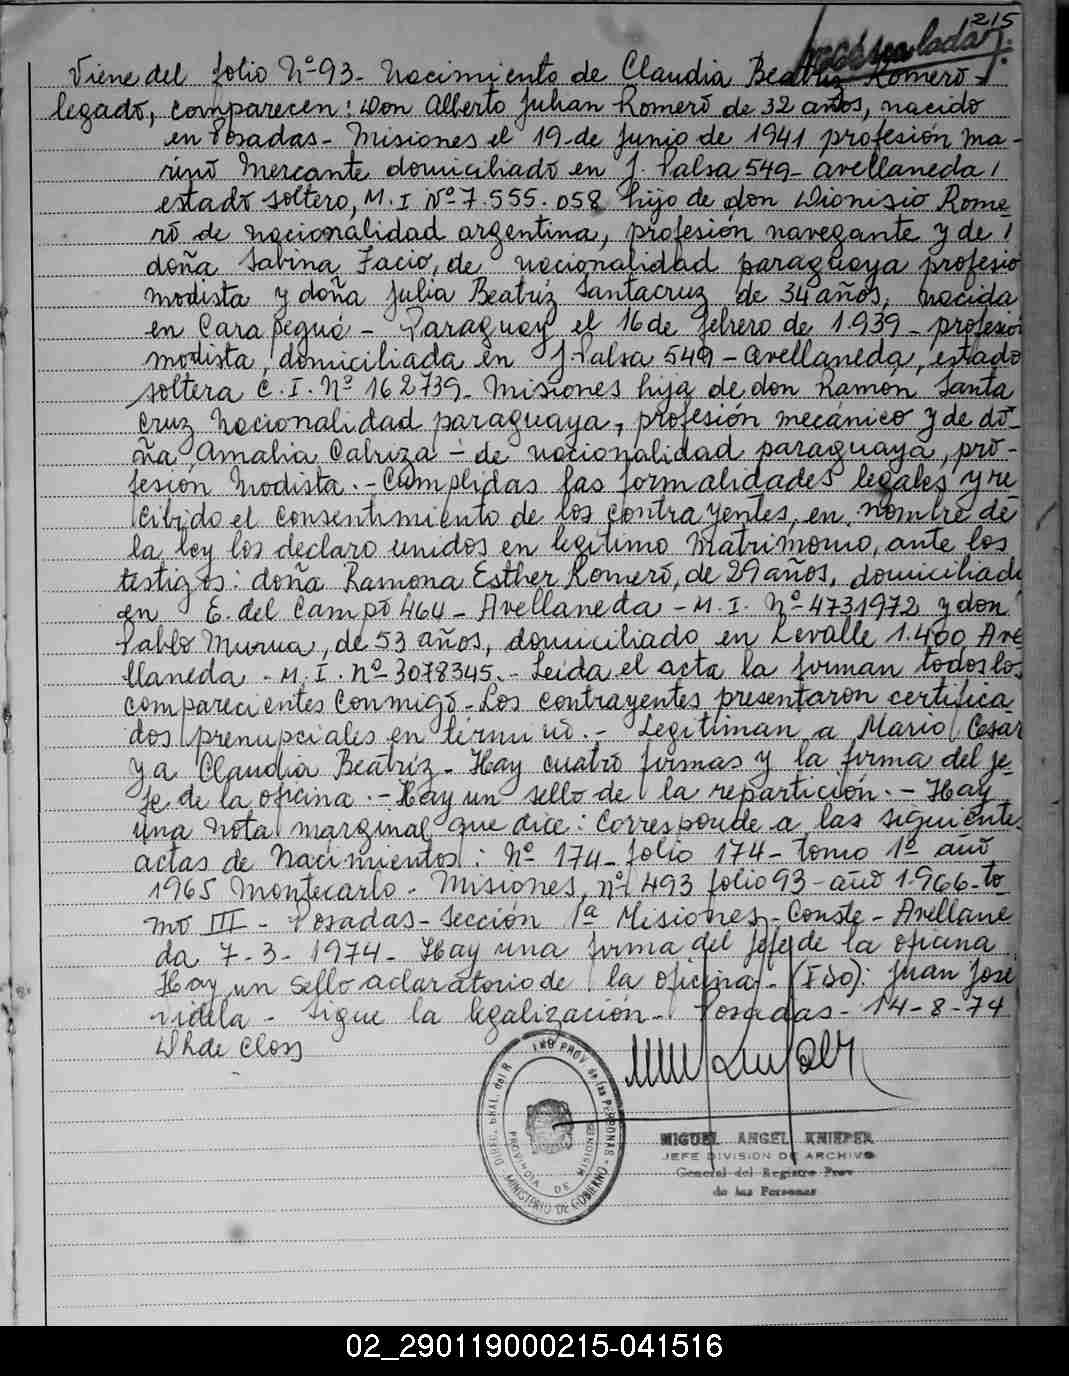 215
Viene del folio Nº 93- Nacimiento de Claudia Beatriz Romero-
legado, comparecen: Don Alberto Julian Romero de 32 años, nacido
en Posadas- Misiones el 19-de Junio de 1941 profesión ma-
rino Mercante domiciliado en J. Palsa 549- avellaneda,
estado soltero, M. I Nº 7.555.058 hijo de don Dionisio Rome-
ro de nacionalidad argentina, profesión navegante y de
doña Sabina Facio, de nacionalidad paraguaya profesio
modista y doña Julia Beatriz Santacruz de 34 años, nacida
en Carapeguá - Paraguay el 16 de febrero de 1.939- profesion
modista, domiciliada en J. Palsa 549 - avellaneda, estado
soltera C. I. Nº 162739- Misiones hija de don Ramón Santa
Cruz Nacionalidad paraguaya, profesión mecánico y de do-
ña Amalia Cabriza - de nacionalidad paraguaya, pro-
fesión Modista.- Cumplidas las formalidades legales y re
cibido el consentimiento de los contrayentes, en nombre de
la ley los declaro unidos en legítimo Matrimonio, ante los
testigos: doña Ramona Esther Romero, de 29 años, domiciliad
en E. del Campo 464- Avellaneda - M. I. Nº 4731972 y don
Pablo Murua, de 53 años, domiciliado en Levalle 1.400, Ave
llaneda - M. I. Nº 3078345.- Leída el acta la firman todos los
comparecientes Conmigo- Los contrayentes presentaron certifica-
dos prenupciales en término.- Legitiman a Mario Cesar
y a Claudia Beatriz- Hay cuatro firmas y la firma del je-
fe de la oficina.- Hay un sello de la repartición.- Hay
una Nota marginal que dice: Corresponde a las siguiente
actas de Nacimientos: Nº 174- folio 174- tomo 1º año
1965 Montecarlo- Misiones, nº 493 folio 93- año 1.966- to-
mo III - Posadas- Sección 1ª Misiones- Conste- Avellane
da 7-3-1974- Hay una firma del jefe de la oficina
Hay un sello aclaratorio de la oficina- (Fdo): Juan José
Videla- Sigue la legalización- Posadas- 14-8-74
de Closs
DIREC. GRAL. del R PROV. de las PERSONAS
PROVINCIA DE MISIONES
MINISTERIO DE GOBIERNO
MIGUEL ANGEL KNIEPER
JEFE DIVISION DE ARCHIVO
General del Registro Prov
de las Personas
02_290119000215-041516